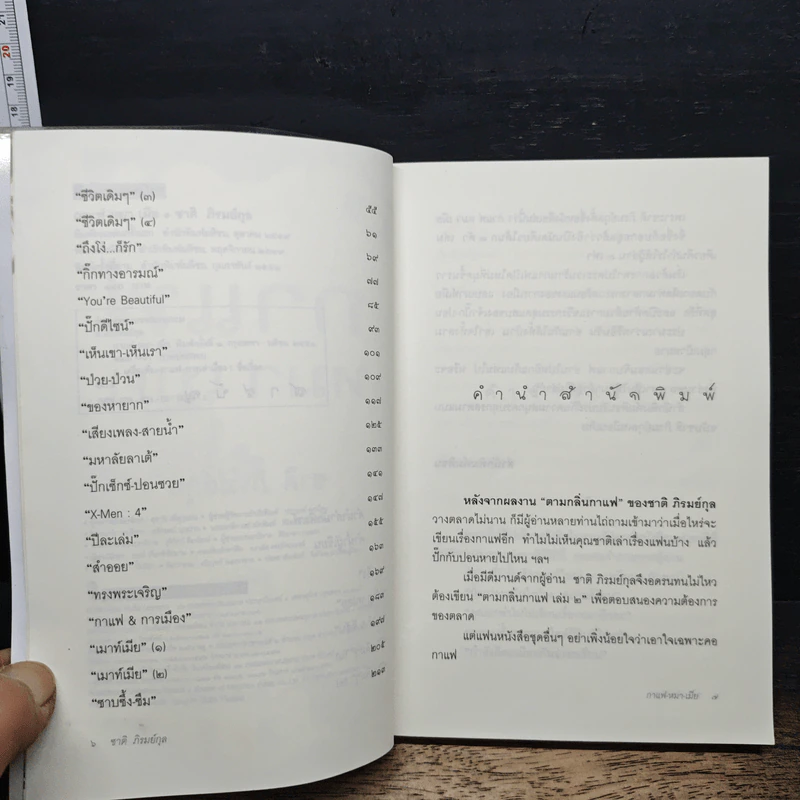 21
20
19
18
"ชีวิตเดิมๆ" (๓) ๕๕
"ชีวิตเดิมๆ" (๔) ๖๑
"ถึงโง่...ก็รัก" ๖๙
"กิ๊กทางอารมณ์" ๗๗
"You're Beautiful" ๘๕
"ปั๊กดีไซน์" ๙๓
"เห็นเขา-เห็นเรา" ๑๐๑
"ป่วย-ป่วน" ๑๐๙
"ของหายาก" ๑๑๗
"เสียงเพลง-สายน้ำ" ๑๒๕
"มหาลัยลาเต้" ๑๓๓
"ปั๊กเซ็กซ์-ปอนซวย" ๑๔๑
"X-Men : 4" ๑๔๗
"ปีละเล่ม" ๑๕๕
"ลำออย" ๑๖๓
"ทรงพระเจริญ" ๑๖๙
"กาแฟ & การเมือง" ๑๘๓
"เมาท์เมีย" (๑) ๑๙๗
"เมาท์เมีย" (๒) ๒๐๕
"ซาบซึ้ง-ซึม" ๒๑๓
๖ ชาติ ภิรมย์กุล
คำนำสำนักพิมพ์
หลังจากผลงาน "ตามกลิ่นกาแฟ" ของชาติ ภิรมย์กุล
วางตลาดไม่นาน ก็มีผู้อ่านหลายท่านไถ่ถามเข้ามาว่าเมื่อไหร่จะ
เขียนเรื่องกาแฟอีก ทำไมไม่เห็นคุณชาติเล่าเรื่องแฟนบ้าง แล้ว
ปั๊กกับปอนหายไปไหน ฯลฯ
เมื่อมีดีมานด์จากผู้อ่าน ชาติ ภิรมย์กุลจึงอดรนทนไม่ไหว
ต้องเขียน "ตามกลิ่นกาแฟ เล่ม ๒" เพื่อตอบสนองความต้องการ
ของตลาด
แต่แฟนหนังสือชุดอื่นๆ อย่าเพิ่งน้อยใจว่าเอาใจเฉพาะคอ
กาแฟ
กาแฟ-หมา-เมีย ๗